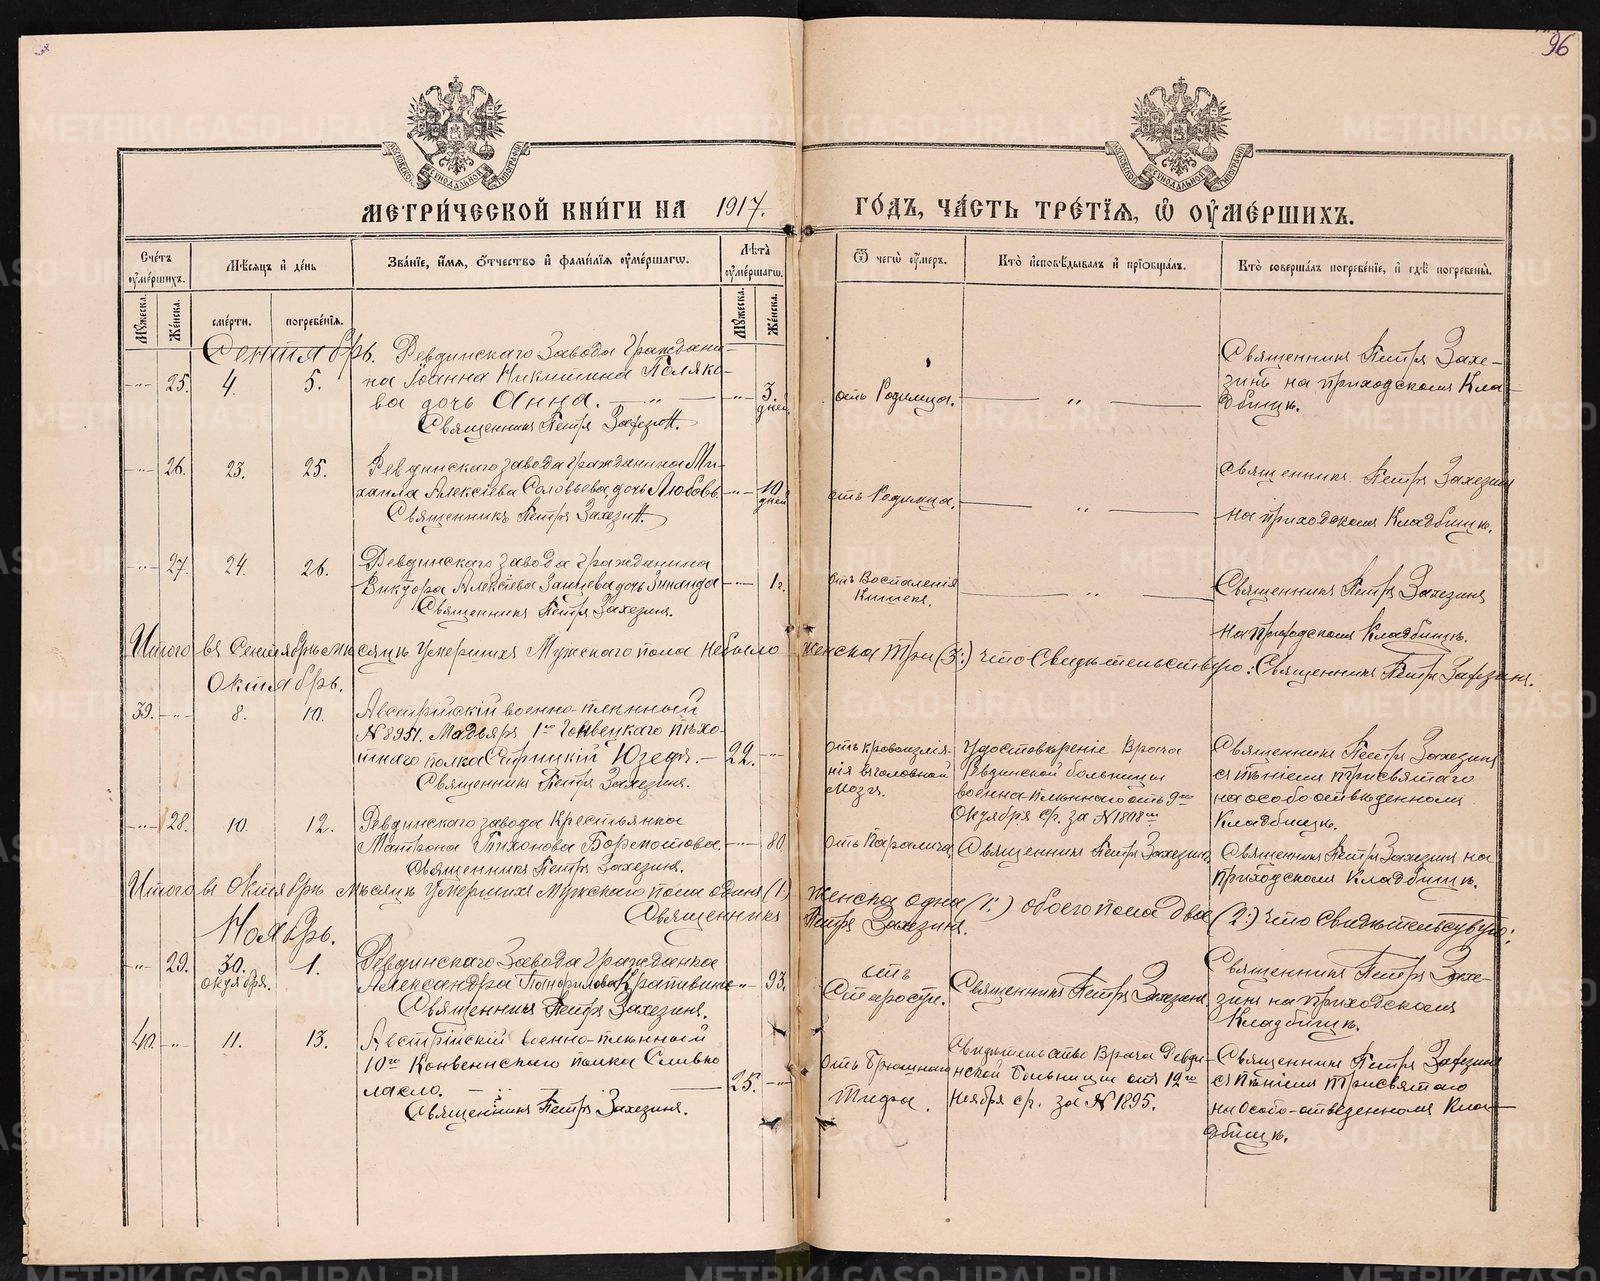 96
МЕТРИ́ЧЕСКОЙ КНИ́ГИ НА 1917.
ГО́ДЪ, ЧА́СТЬ ТРЕ́ТЇѦ, Ѡ҆ ОУ҆МЕ́РШИХЪ.
Сче́тъ оу҆ме́ршихъ.
Мѣ́сяцъ и҆ де́нь
Зва́нїе, и҆́мѧ, ѻ҆́тчество и҆ фамилїѧ оу҆ме́ршагѡ.
Лѣ́та оу҆ме́ршагѡ.
Ѿ чегѡ̀ оу҆́меръ.
Кто̀ и҆сповѣ́дывалъ и҆ прїѻбща́лъ.
Кто̀ соверша́лъ погребе́нїе, и҆ гдѣ̀ погребены̀.
Мꙋ́жеска.
Же́нска.
сме́рти.
погребе́нїѧ.
Мꙋ́жеска.
Же́нска.
Сентябрь.
25. 4. 5.
Ревдинскаго Завода Граждани-
на Іоанна Никитина Поляко-
ва дочь Анна.
3. дней
Священникъ Петръ Захезин.
отъ Родимца.
Священникъ Петръ Захе-
зинъ на приходскомъ Кла-
дбищѣ.
26. 23. 25.
Ревдинскаго завода Гражданина Ми-
хаила Алексѣева Соловьева дочь Любовь.
10 дней
Священникъ Петръ Захезин.
отъ Родимца.
Священникъ Петръ Захезинъ
на приходскомъ Кладбищѣ.
27. 24. 26.
Ревдинскаго завода Гражданина
Виктора Алексѣева Зайцева дочь Зинаида
1 г.
Священникъ Петръ Захезинъ.
отъ Воспаленія
Кишекъ.
Священникъ Петръ Захезинъ
на Приходскомъ Кладбищѣ.
Итого въ Сентябрѣ мѣсяцѣ умершихъ Мужскаго пола небыло женска три (3:) что Свидѣтельствую: Священникъ Петръ Захезинъ.
Октябрь.
39. 8. 10.
Австрійскій военно-плѣнный
№ 8951. Мадьяръ, 1го Гонвецкаго пѣхо-
тнаго полка Юзефъ.
22.
Священникъ Петръ Захезинъ.
отъ кровоизлія-
нія въ головной
мозгъ.
Удостовѣреніе Врача
Ревдинской больницы
военна-плѣннаго отъ 9го
Октября с/г. за №
Священникъ Петръ Захезинъ
съ пѣніемъ трисвятаго
на особо отвѣденномъ
Кладбищѣ.
28. 10. 12.
Ревдинскаго завода Крестьянка
Матрона Тихонова Бормотова.
80.
Священникъ Петръ Захезинъ.
отъ Паралича.
Священникъ Петръ Захезинъ.
Священникъ Петръ Захезинъ на
приходскомъ Кладбищѣ.
Итого въ Октябрѣ мѣсяцѣ умершихъ мужскаго пола одинъ (1.) женска одна (1:) обоего пола два (2:) что Свидѣтельствую:
Священникъ Петръ Захезинъ.
Ноябрь.
29. 30. октября. 1.
Ревдинскаго Завода Гражданка
Александра
93.
Священникъ Петръ Захезинъ.
отъ
Старости.
Священникъ Петръ Захезинъ.
Священникъ Петръ Захе-
зинъ на приходскомъ
Кладбищѣ.
40. 11. 13.
Австрійскій военно-плѣнный
10го полка
25.
Священникъ Петръ Захезинъ.
отъ Брюшнаго
Тифа.
Свидѣтельство Врача Ревди-
нской больницы отъ 12го
ноября с/г. за № 1895.
Священникъ Петръ Захезинъ
съ пѣніемъ трисвятаго
на особо-отведенномъ Кла-
дбищѣ.